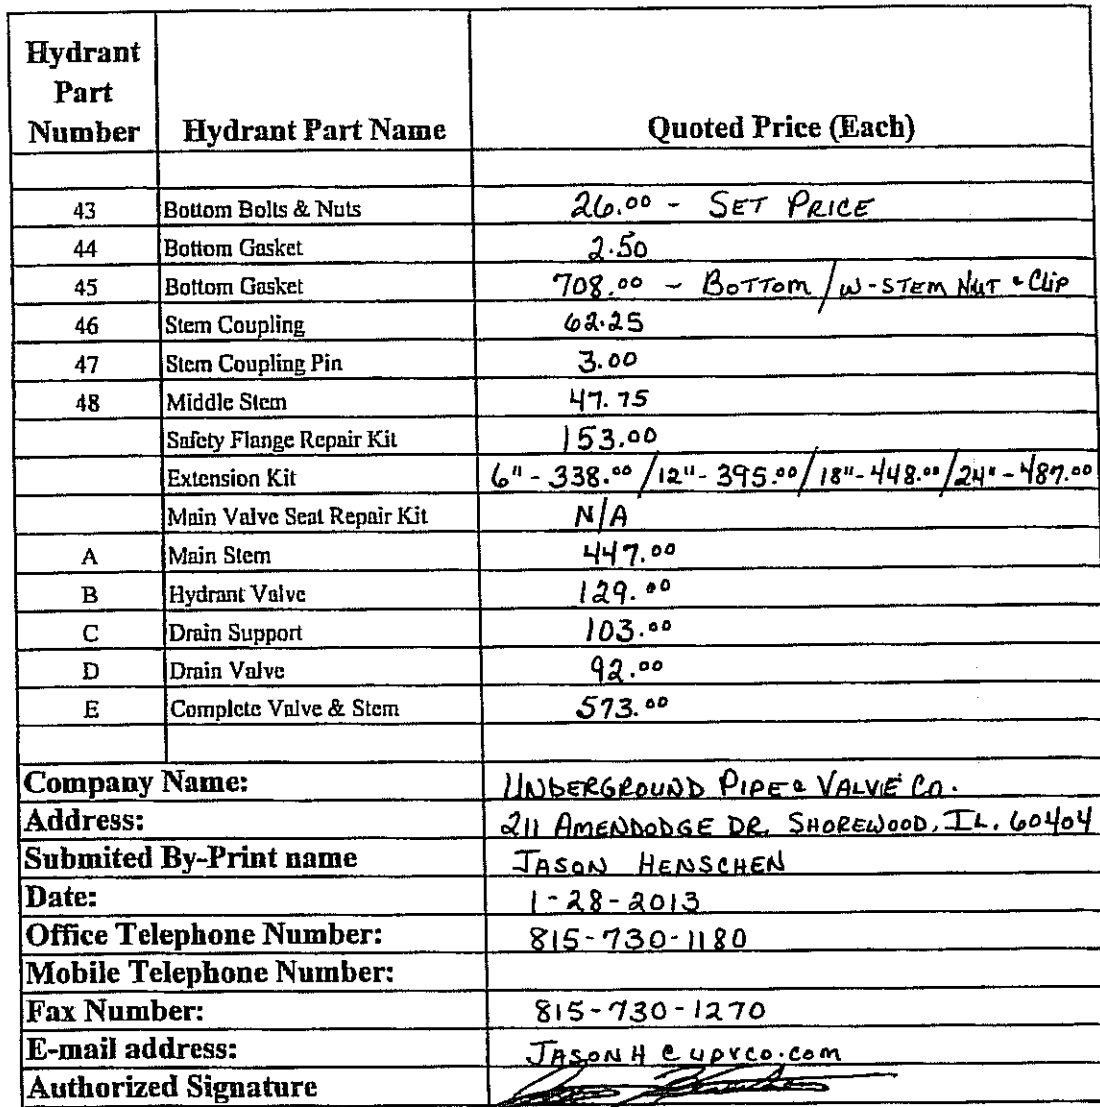 Hydrant Part Number Hydrant Part Name Quoted Price (Each)
43 Bottom Bolts & Nuts 26.00 - SET PRICE
44 Bottom Gasket 2.50
45 Bottom Gasket 708.00 - BOTTOM / W-STEM NUT & CLIP
46 Stem Coupling 62.25
47 Stem Coupling Pin 3.00
48 Middle Stem 47.75
Safety Flange Repair Kit 153.00
Extension Kit 6" - 338.00 / 12" - 395.00 / 18" - 448.00 / 24" - 487.00
Main Valve Seat Repair Kit N/A
A Main Stem 447.00
B Hydrant Valve 129.00
C Drain Support 103.00
D Drain Valve 92.00
E Complete Valve & Stem 573.00
Company Name: UNDERGROUND PIPE & VALVE CO.
Address: 211 AMENDODGE DR. SHOREWOOD, IL. 60404
Submited By-Print name JASON HENSCHEN
Date: 1-28-2013
Office Telephone Number: 815-730-1180
Mobile Telephone Number:
Fax Number: 815-730-1270
E-mail address: JASONH@upvco.com
Authorized Signature